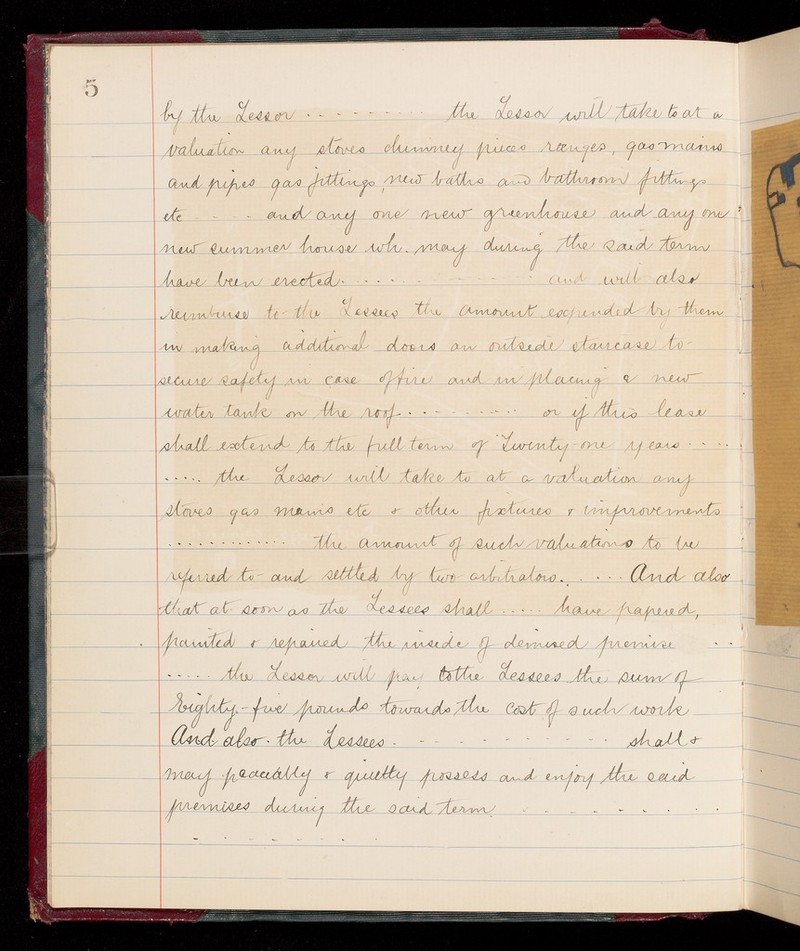 5
by the Lessor . - - - - - - - - the Lessor will take to at a
valuation any stoves chimney pieces ranges, gas mains
and pipes gas fittings, new baths and bathroom fittings
etc - - - - and any one new greenhouse and any one
new summer house wh. may during the said term
have been erected. - - - - - - - - - and will also
reimburse to the Lessees the amount expended by them
in making additional doors an outside staircase to
secure safety in case of fire and in placing a new
water tank on the roof - - - - - - - - - or if this lease
shall extend to the full term of Twenty-one years - - - -
- - - - - the Lessor will take to at a valuation any
stoves gas mains etc & other fixtures & improvements
- - - - - - - - - - - - the amount of such valuations to be
referred to and settled by two arbitrators. . - - - - And also
that at soon as the Lessees shall - - - - - have papered,
painted & repaired the inside of demised premise - -
- - - - - the Lessor will pay to the Lessees the sum of
Eighty-five pounds towards the cost of such work
And also - the Lessees - - - - - - - - - - - - shall &
may peaceably & quietly possess and enjoy the said
premises during the said term. - - - - - - - - -
- - - - - - - -